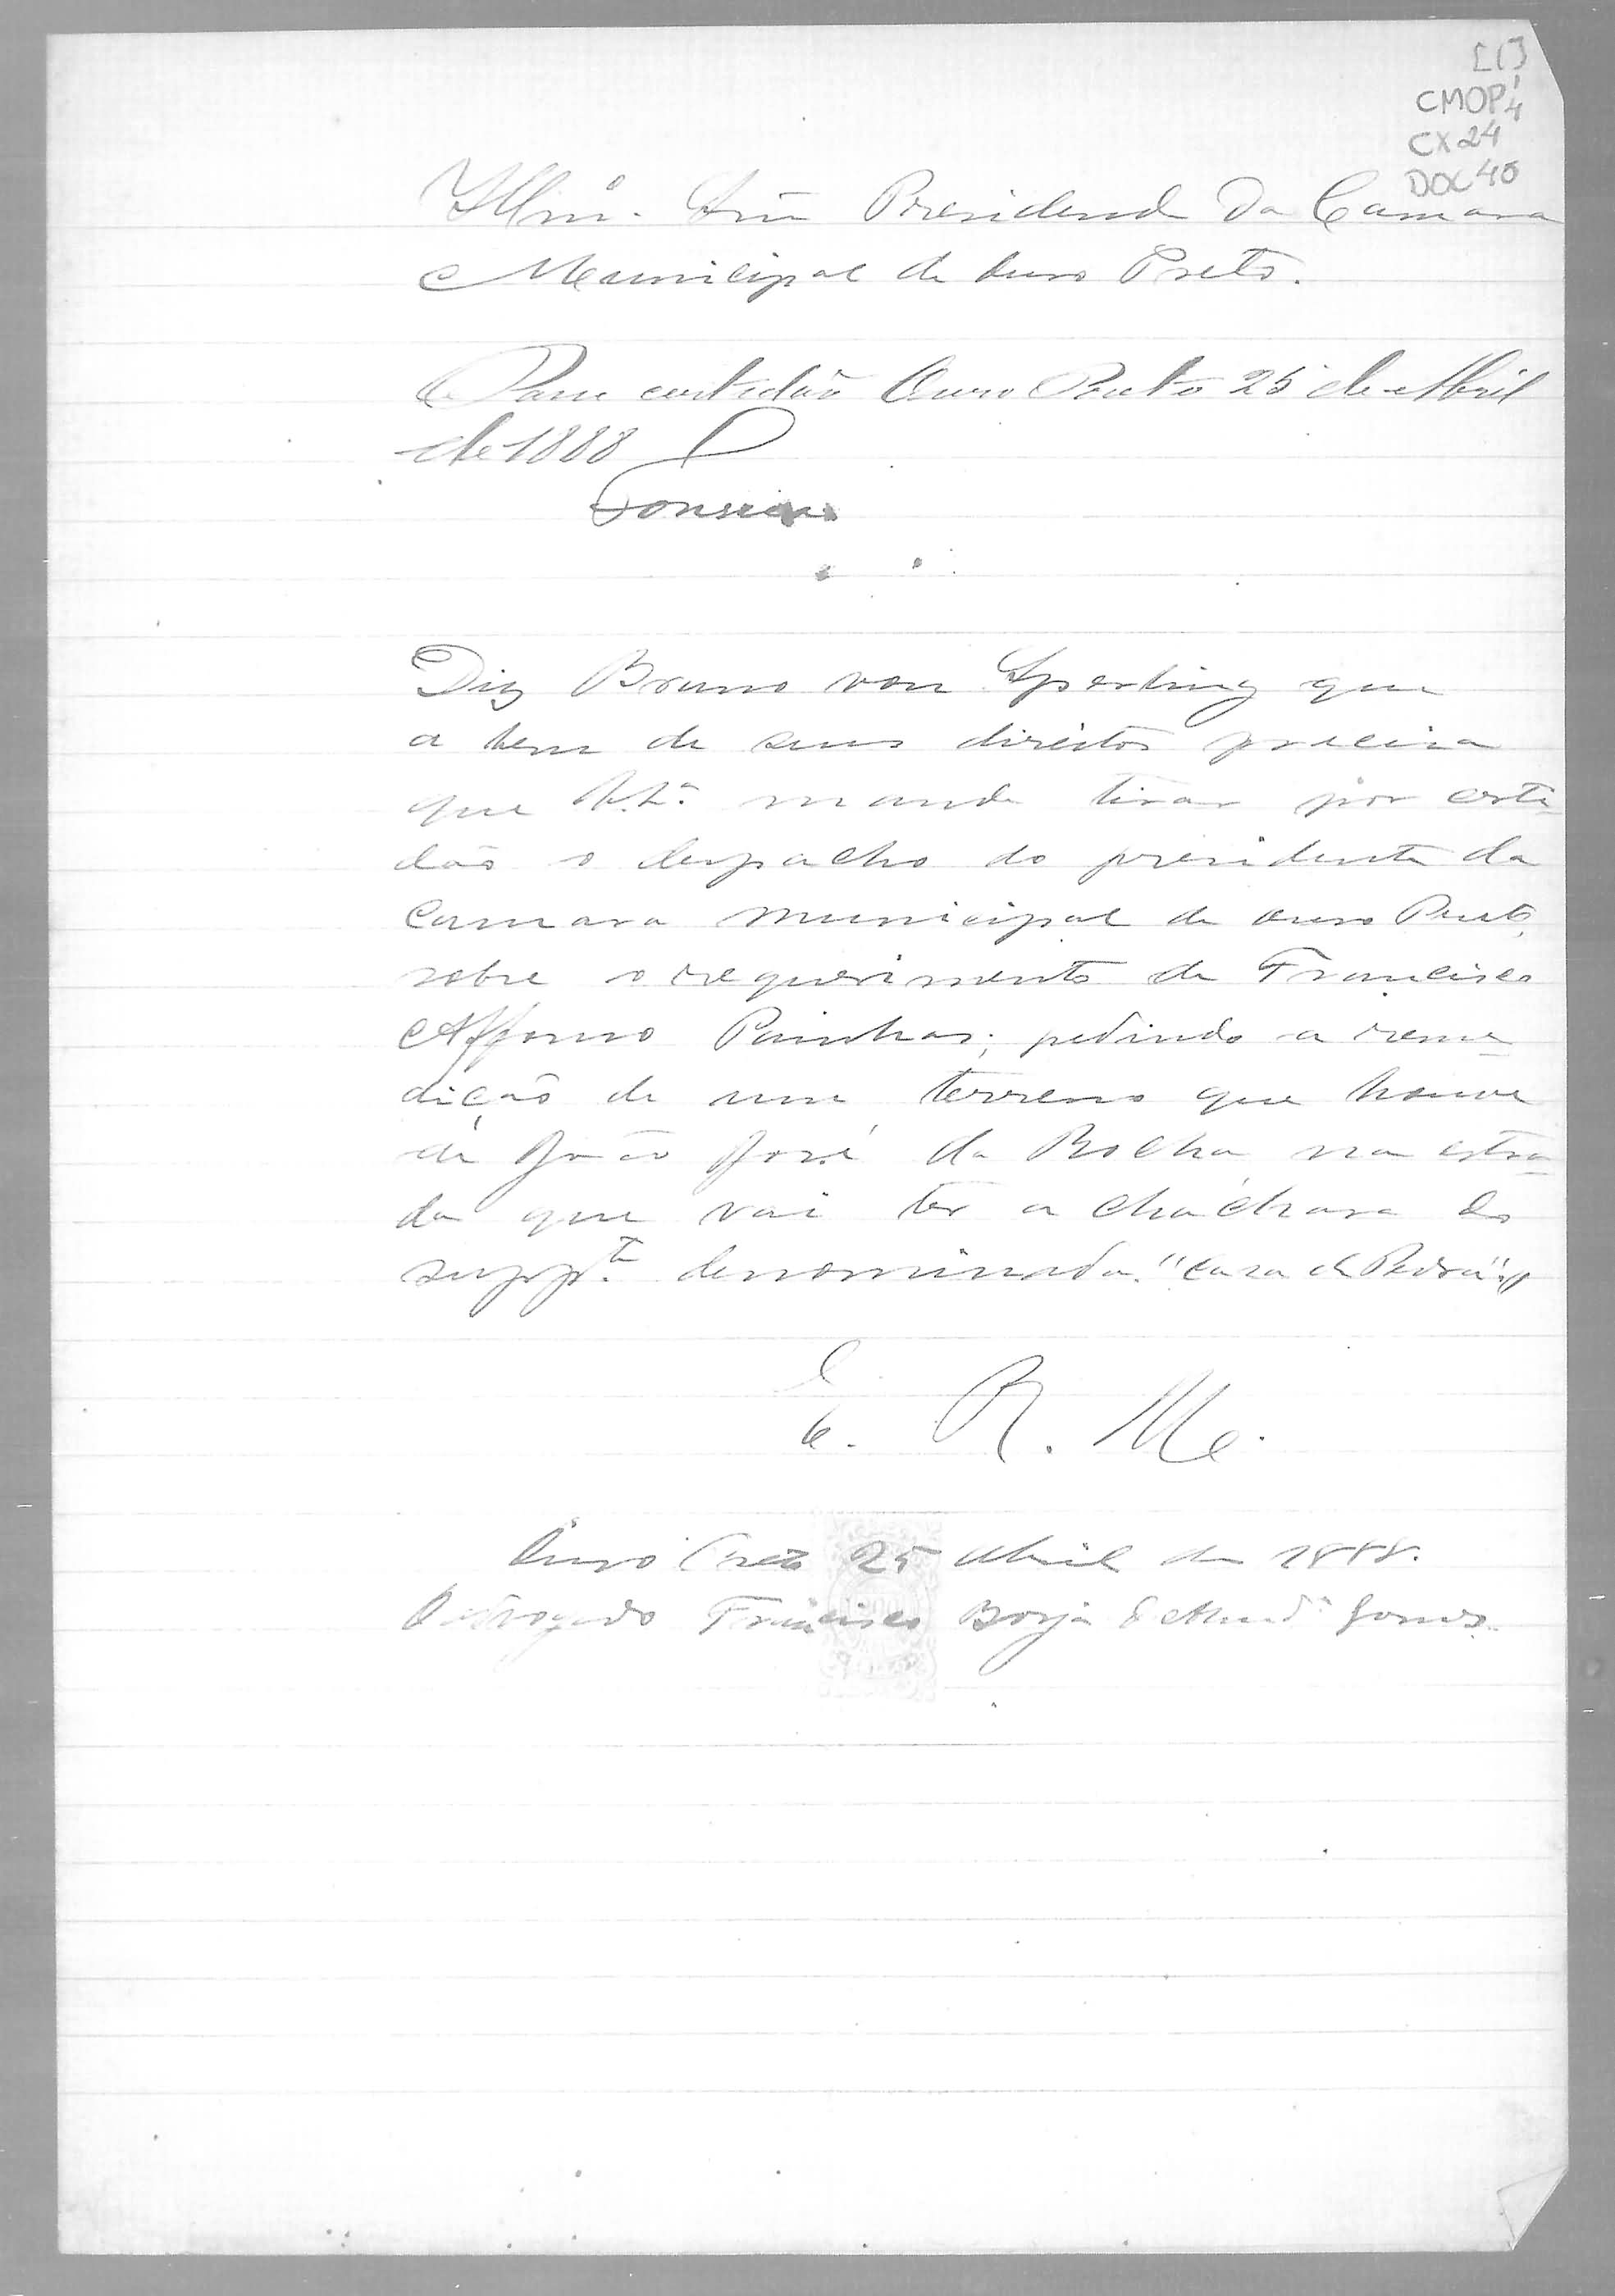 [1]
CMOP 1/4
CX 24
DOC 40
Illmo. Snr Presidend da Camara
Municipal de Ouro Preto.
Passe certidão Ouro Preto 25 de Abril
de 1888
Fonseca
Diz Bruno von Sperling que
a bem de seus direitos precisa
que V.Sª. mande tirar por certi-
dão o despacho do presidente da
Camara municipal de ouro Preto,
sobre o requerimento de Francisco
Affonso Painhas; pedindo a reme-
dição de um terreno que houve
de João José da Rocha, na estra-
da que vai ter a cháchara do
suppte. denominada "Casa de Pedra".
E. R. Mce.
Ouro Preto 25 Abril de 1888.
O advogado Francisco Borja Gomes.